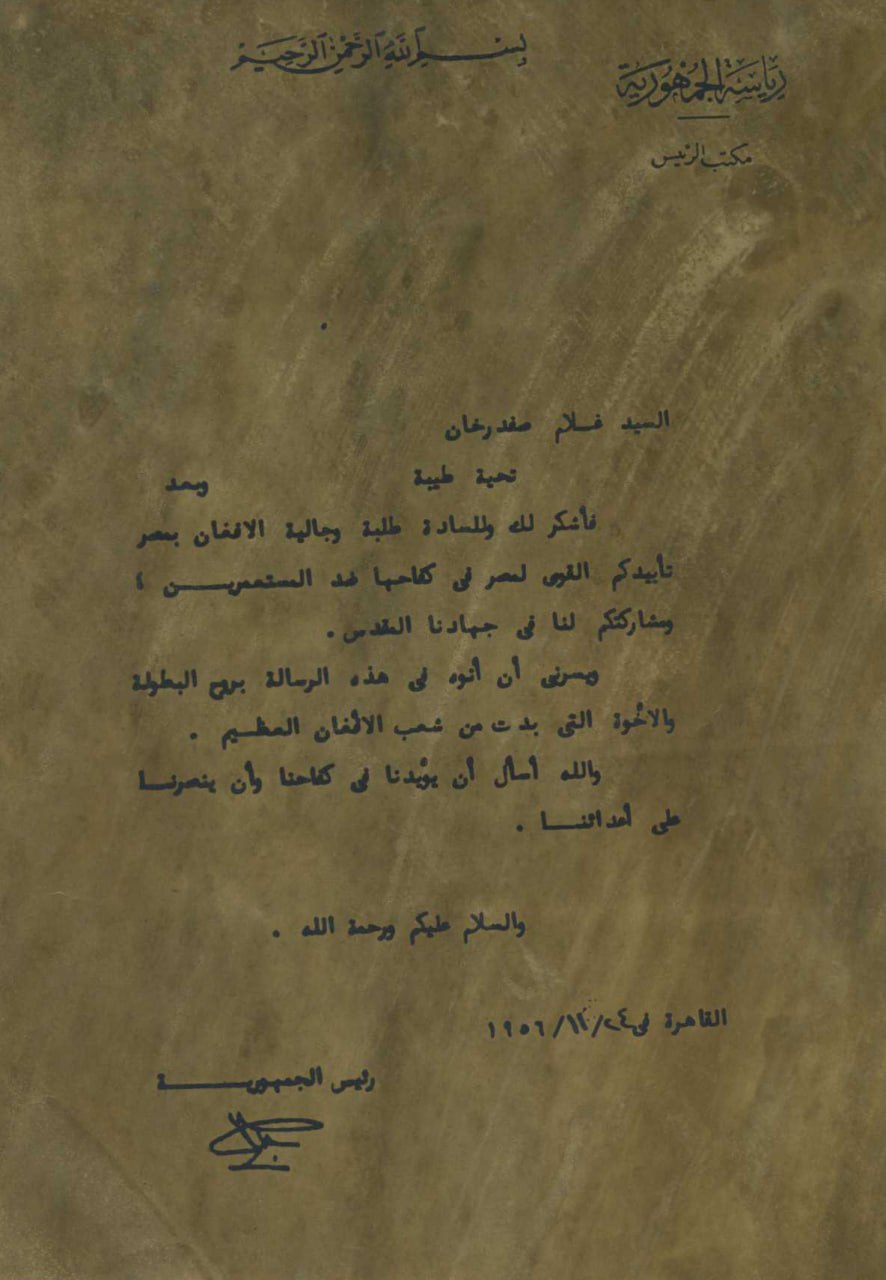 بِسْمِ اللَّهِ الرَّحْمٰنِ الرَّحِيمِ
رياسة الجمهورية
مكتب الرئيس
السيد غلام صفدرخان
تحية طيبة وبعد
فأشكر لك وللسادة طلبة وجالية الافغان بمصر
تأييدكم القوى لمصر فى كفاحها ضد المستعمرين ،
ومشاركتكم لنا فى جهادنا المقدس .
ويسرنى أن أنوه فى هذه الرسالة بروح البطولة
والاخُوة التى بدت من شعب الافُغان العظيم .
والله أسأل أن يؤيدنا فى كفاحنا وأن ينصرنا
على أعدائنا .
والسلام عليكم ورحمة الله .
القاهرة فى ٢٤/ /١٩٥٦
رئيس الجمهورية